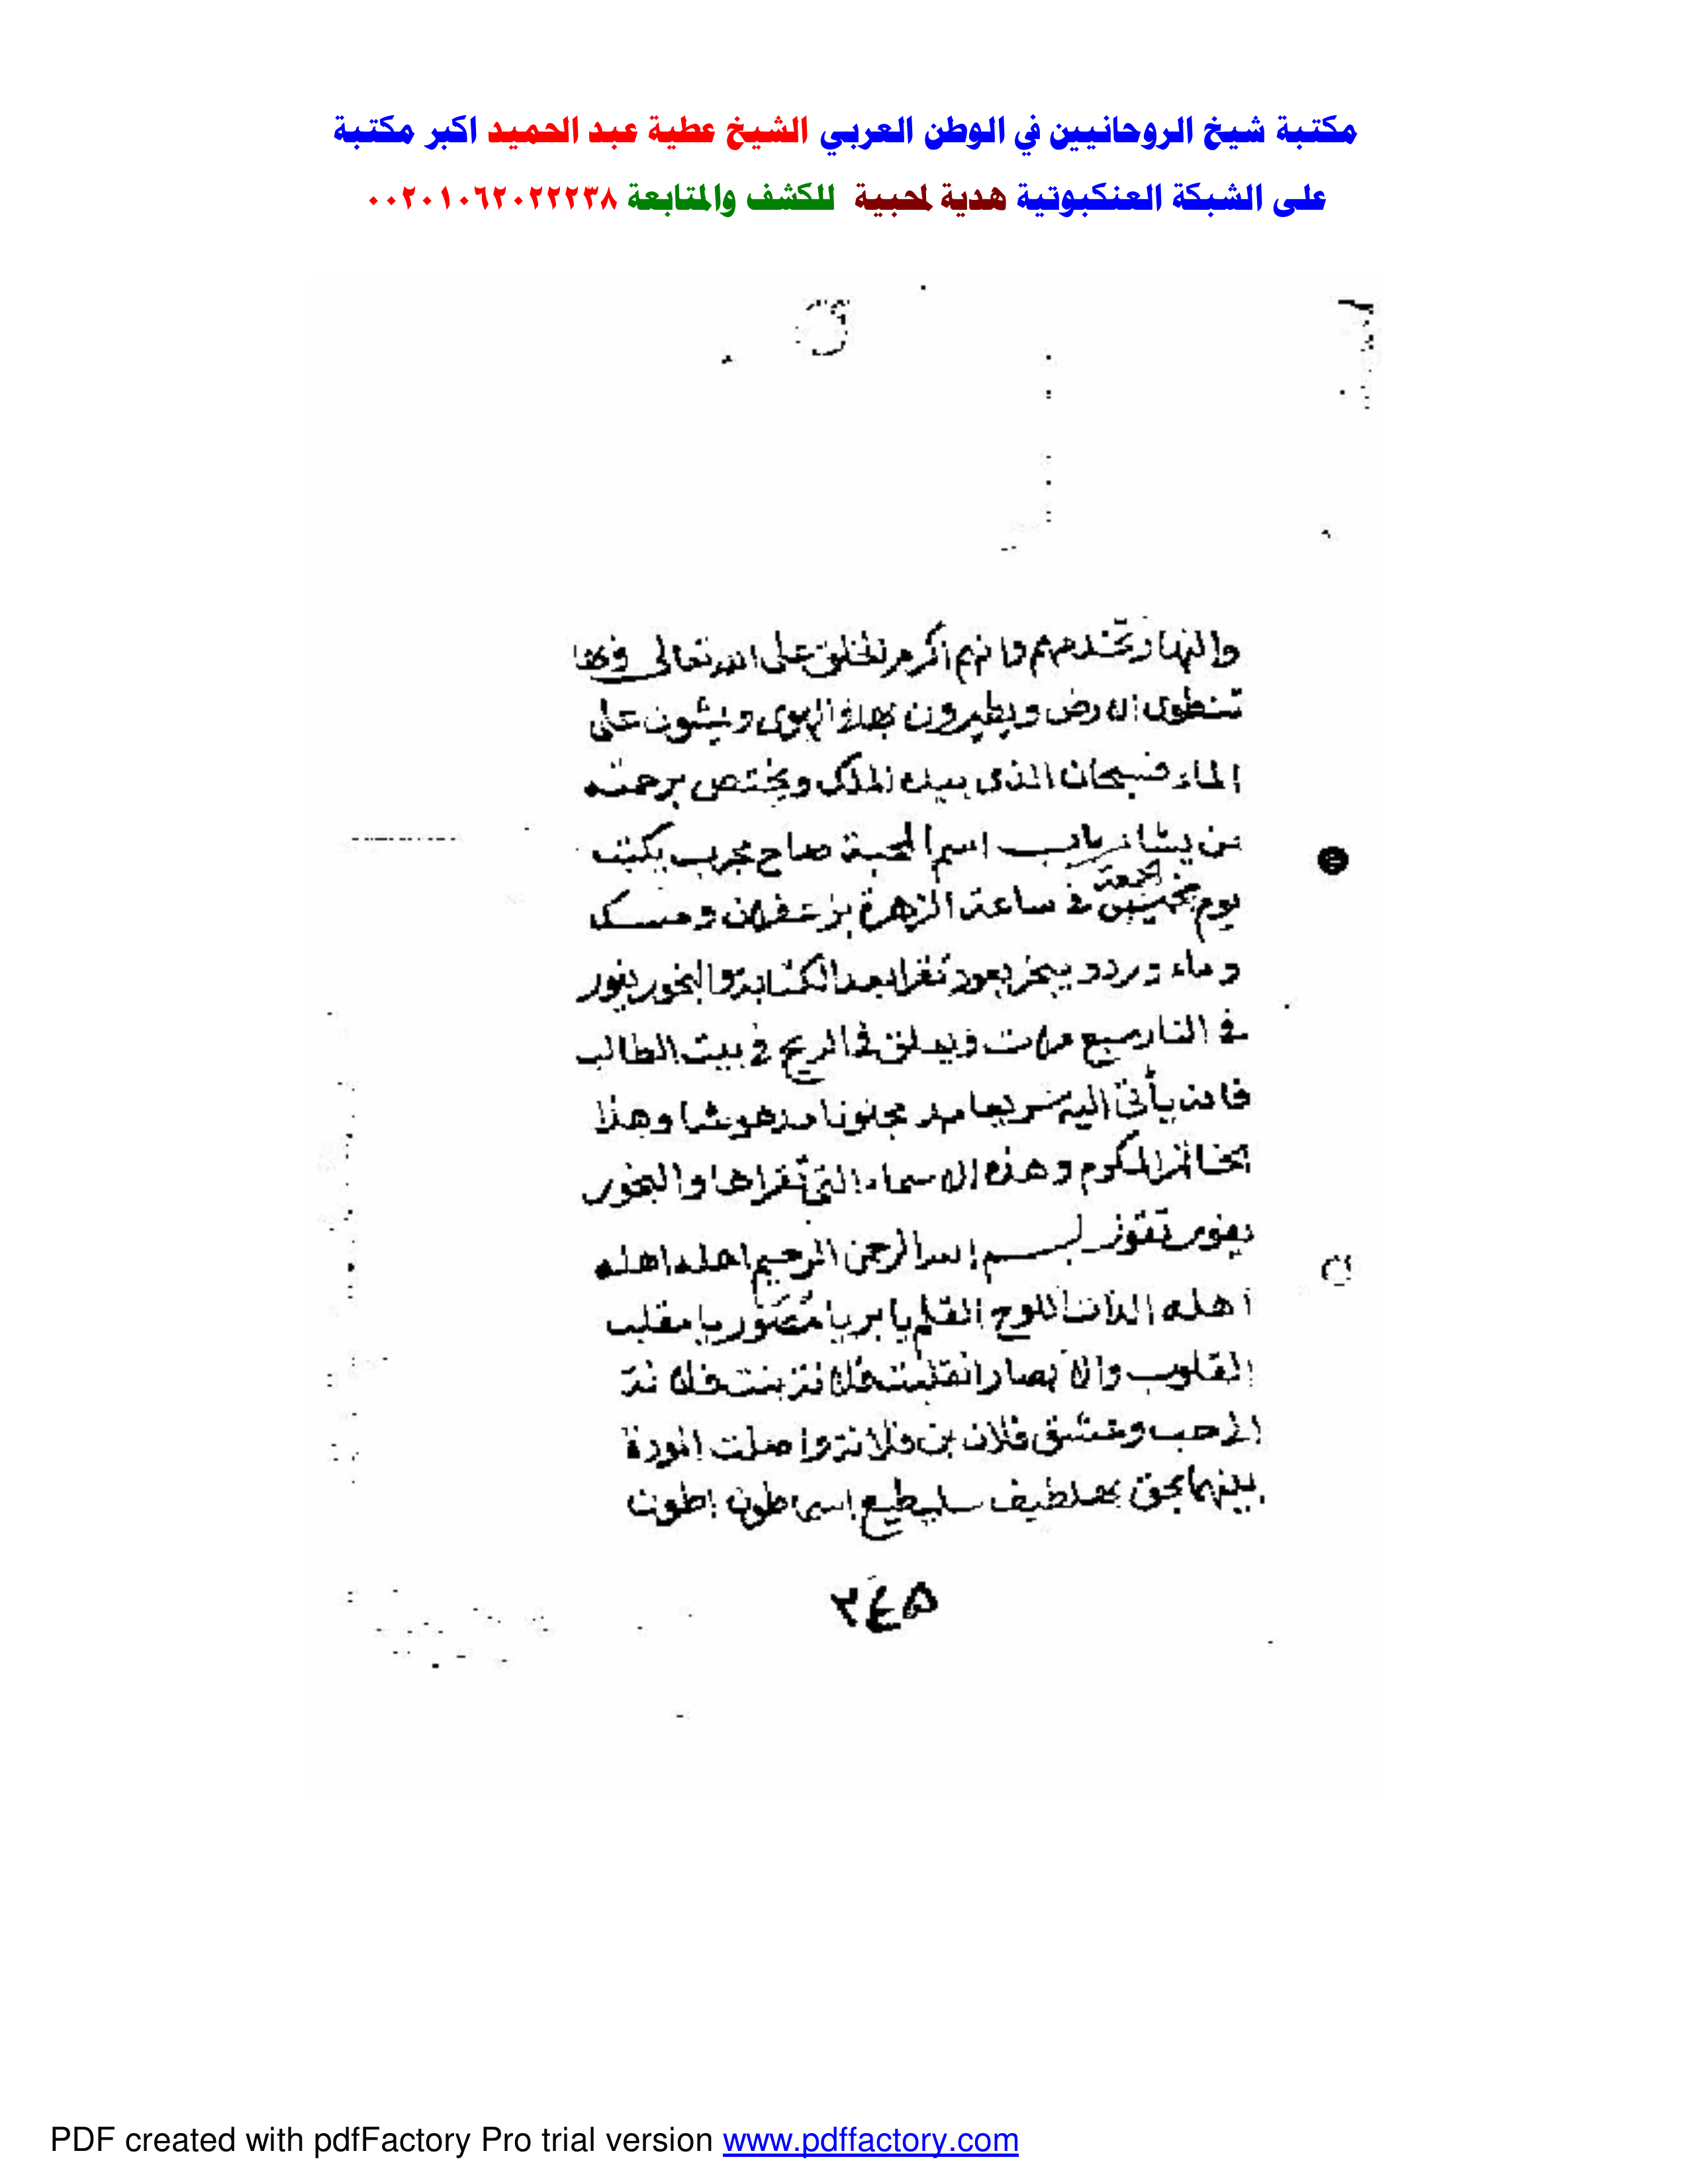 مكتبة شيخ الروحانيين في الوطن العربي الشيخ عطية عبد الحميد اكبر مكتبة
على الشبكة العنكبوتية هدية لمحبية للكشف والمتابعة ٠٠٢٠١٠٦٢٠٢٢٢٣٨
والنهار تخدمهم وانهم اكرم الخلق على الله تعالى
تنطوى الارض ويطيرون الهوى ويمشون على
الماء فسبحان الذى بيده الملك ويختص برحمته
من يشاء باب اسم المحبة صاح مجرب يكتب
يوم الجمعة فى ساعة الزهرة بزعفران ومسك
وماء ورد ويبخر بعود تقرا بعد الكتابة والبخور يفور
فى النار سبع مرات ويعلق فى الريح فى بيت الطالب
فانه يأتى اليه سريعا مجنونا مدهوشا وهذا
الخاتم المكرم وهذه الاسماء التى تقراها والبخور
يفور تقول بسم الله الرحمن الرحيم اهله اهله
اهله الذات اللوح القلم يا يا مصور يا مقلب
القلوب والابصار بنت فلانة
الحب وعشق فلان بن فلانة واصلت المودة
بينهما بحق اطون
٢٤٥
PDF created with pdfFactory Pro trial version www.pdffactory.com